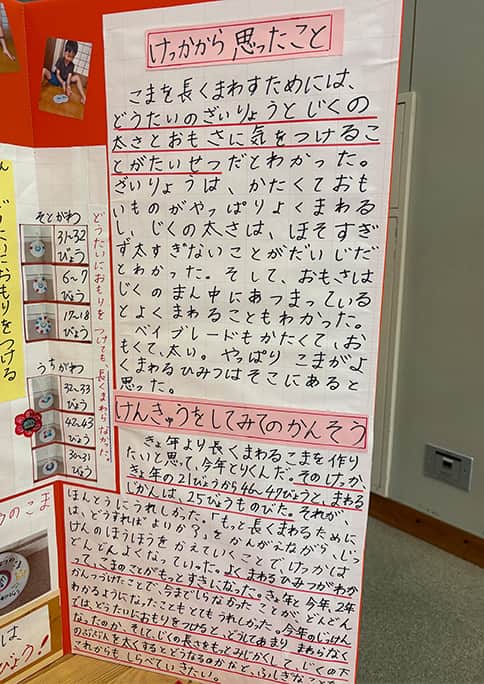 けっかから思ったこと
こまを長くまわすためには、
どうたいのざいりょうとじくの
太さとおもさに気をつけるこ
とがたいせつだとわかった。
ざいりょうは、かたくておも
いものがやっぱりよくまわる
し、じくの太さは、ほそすぎ
ず太すぎないことがだいじだ
とわかった。そして、おもさは
じくのまん中にあつまっている
とよくまわることもわかった。
ベイブレードもかたくて、お
もくて、太い。やっぱりこまがよく
まわるひみつはそこにあると
思った。
けんきゅうをしてみてのかんそう
きょ年より長くまわるこまを作り
たいと思って、今年とりくんだ。そのけっか、
きょ年の21びょうから46〜47びょうと、まわる
じかんは、25びょうものびた。それが、
ほんとうにうれしかった。「もっと長くまわるために
は、どうすればよいか?」をかんがえながら、じっ
けんのほうほうをかえていくことで、けっかは
どんどんよくなっていった。よくまわるひみつがわか
って、こまのことがもっとすきになった。きょ年と今年、2年
かんつづけたことで、今までしらなかったことがどんどん
わかるようになったこともとてもうれしかった。今年のじっけん
では、どうたいにおもりをつけると、どうしてあまりまわらなく
なったのか、そして、じくの長さをもっとみじかくして、じくの下
のぶぶんを太くするとどうなるのかなど、ふしぎなことを
これからもしらべていきたい。
どうたいにおもりをつけても長くまわらなかった。
そとがわ
31〜32
びょう
6〜7
びょう
17〜18
びょう
うちがわ
32〜33
びょう
42〜43
びょう
30〜31
びょう
おもりをつける
のこま
は
びょう!